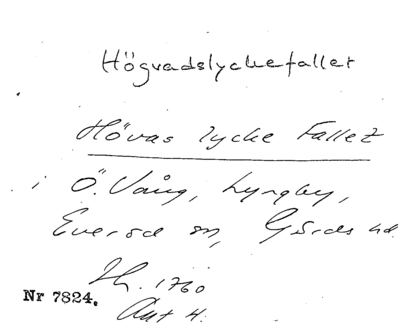 Högvadslyckefallet
Hövas lycke Fallet
i Ö. Vång, Lyngby,
Everöd sn, Gärds hd.
Sk. 1760
Nr 7824.
Akt 4.